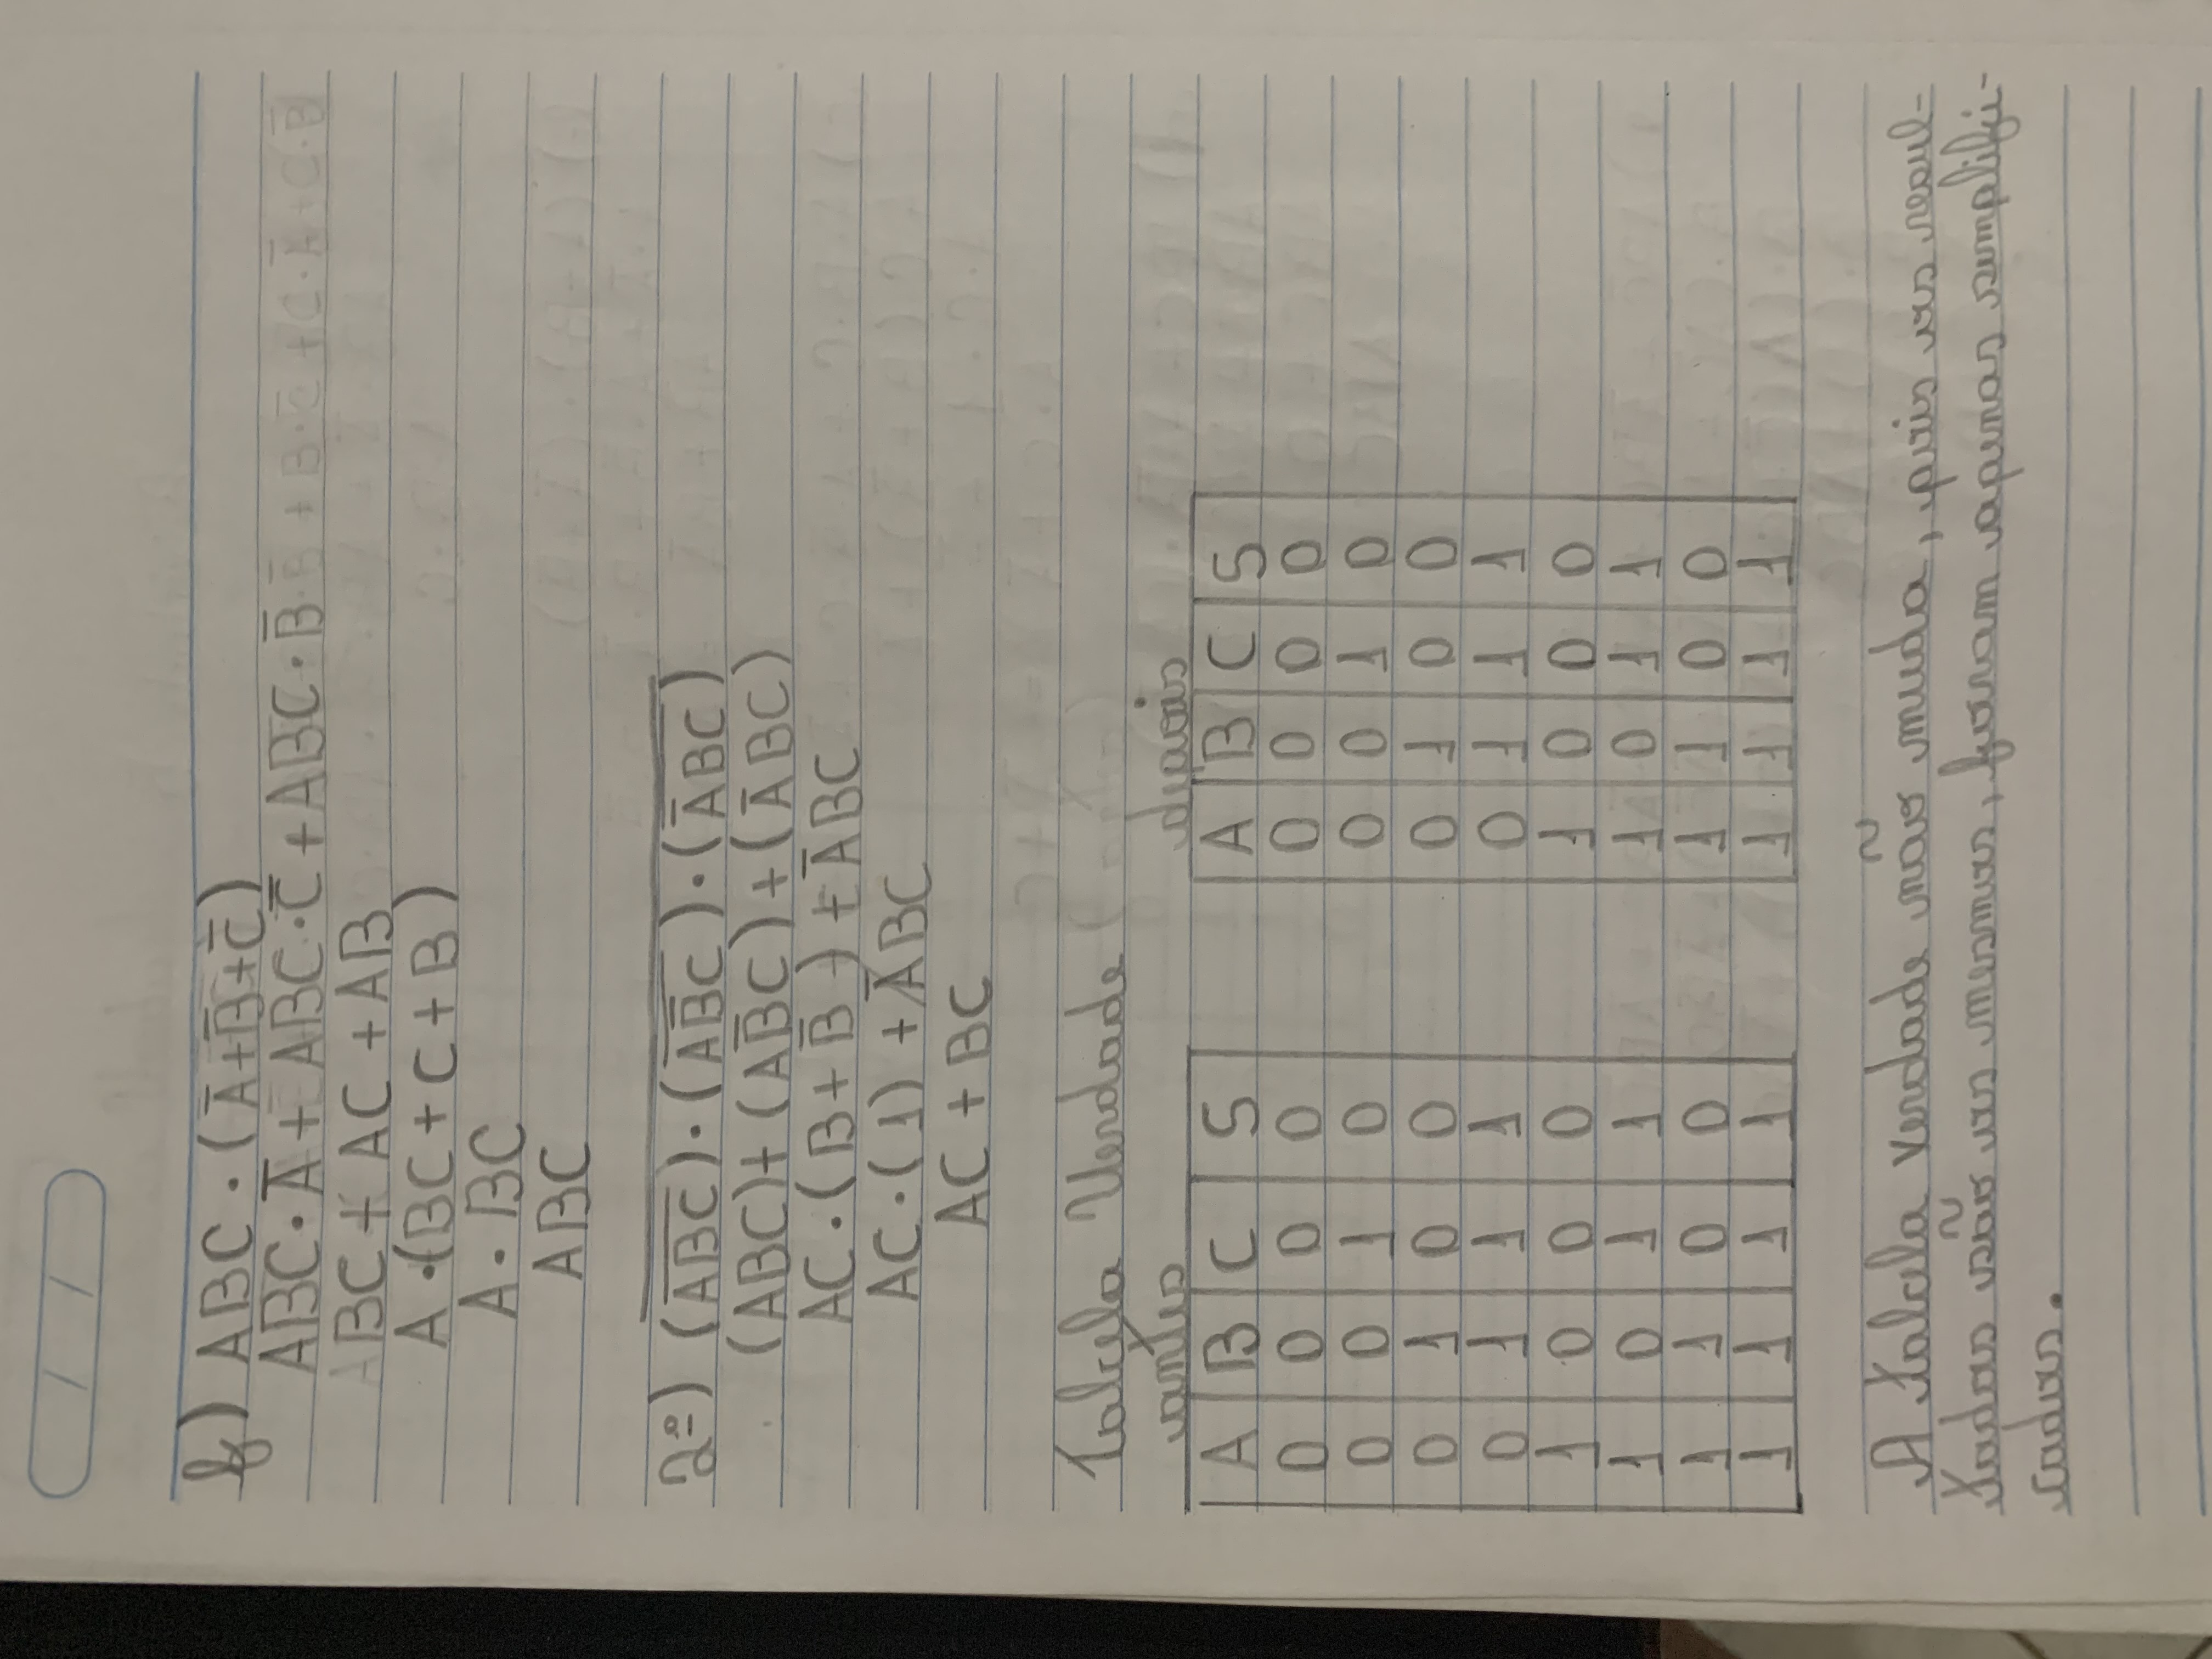 / /
f) ABC · (A̅+B̅+C̅)
ABC·A̅ + ABC·C̅ + ABC·B̅
BC + AC + AB
A ·(BC + C + B)
A · BC
ABC
2º) (A̅B̅C̅)·(A̅B̿C̅)·(A̿B̅C̅)
(ABC)+ (AB̅C) + (A̅BC)
AC · (B + B̅) + A̅BC
AC · (1) + A̅BC
AC + BC
Tabela Verdade
antes depois
A B C S A B C S
0 0 0 0 0 0 0 0
0 0 1 0 0 0 1 0
0 1 0 0 0 1 0 0
0 1 1 1 0 1 1 1
1 0 0 0 1 0 0 0
1 0 1 1 1 0 1 1
1 1 0 0 1 1 0 0
1 1 1 1 1 1 1 1
A tabela verdade não muda, pois os resul-
tados são os mesmos, foram apenas simplifi-
cados.